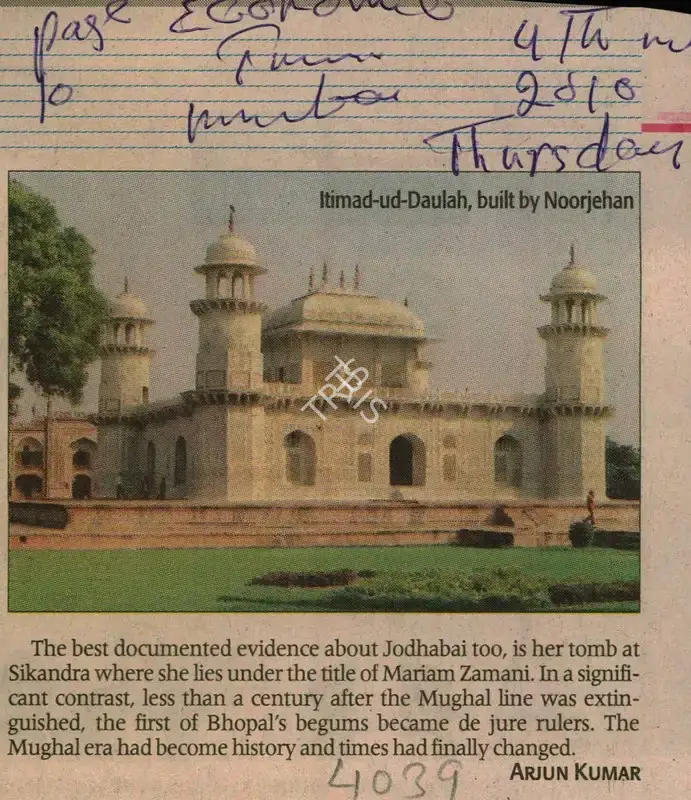 page Economic
Times 4Th
10 mumbai 2010
Thursday
Itimad-ud-Daulah, built by Noorjehan
The best documented evidence about Jodhabai too, is her tomb at
Sikandra where she lies under the title of Mariam Zamani. In a signifi-
cant contrast, less than a century after the Mughal line was extin-
guished, the first of Bhopal's begums became de jure rulers. The
Mughal era had become history and times had finally changed.
ARJUN KUMAR
4039